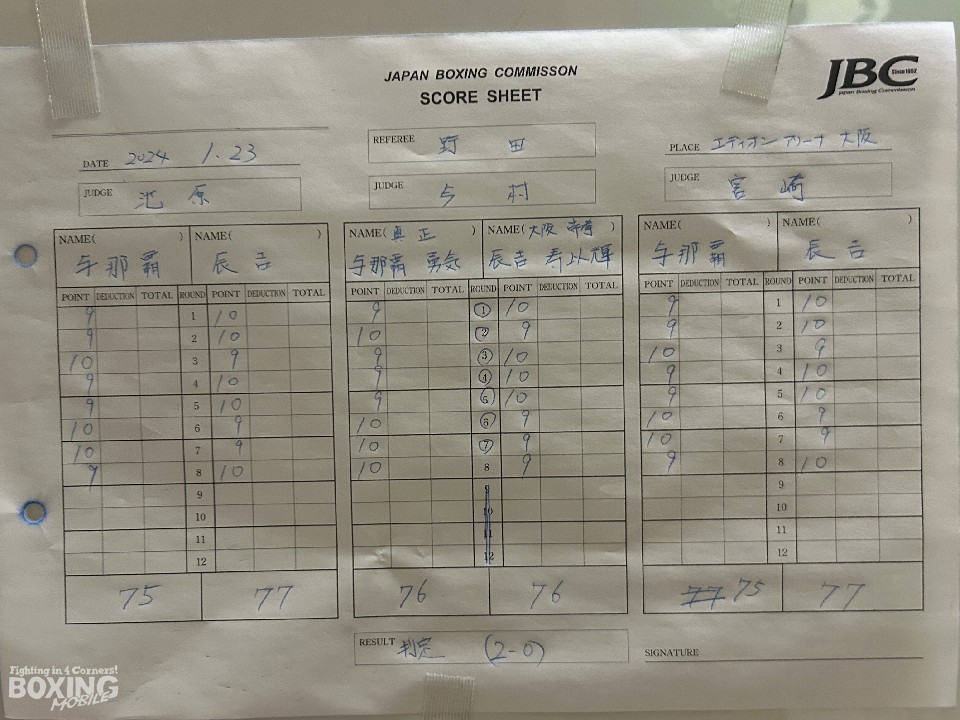 JAPAN BOXING COMMISSON
SCORE SHEET
JBC Since 1952
Japan Boxing Commission
DATE 2024 1.23
REFEREE 野田
PLACE エディオンアリーナ大阪
JUDGE 池原
JUDGE 与村
JUDGE 宮崎
NAME( ) NAME( )
与那覇 辰吉
POINT DEDUCTION TOTAL ROUND POINT DEDUCTION TOTAL
9 1 10
9 2 10
10 3 9
9 4 10
9 5 10
10 6 9
10 7 9
9 8 10
9
10
11
12
75 77
NAME(真正) NAME(大阪帝拳)
与那覇 勇気 辰吉 寿以輝
POINT DEDUCTION TOTAL ROUND POINT DEDUCTION TOTAL
9 1 10
10 2 9
9 3 10
9 4 10
9 5 10
10 6 9
10 7 9
10 8 9
9
10
11
12
76 76
NAME( ) NAME( )
与那覇 辰吉
POINT DEDUCTION TOTAL ROUND POINT DEDUCTION TOTAL
9 1 10
9 2 10
10 3 9
9 4 10
9 5 10
10 6 9
10 7 9
9 8 10
9
10
11
12
77 75 77
RESULT 判定 (2-0)
SIGNATURE
Fighting in 4 Corners!
BOXING
MOBILE